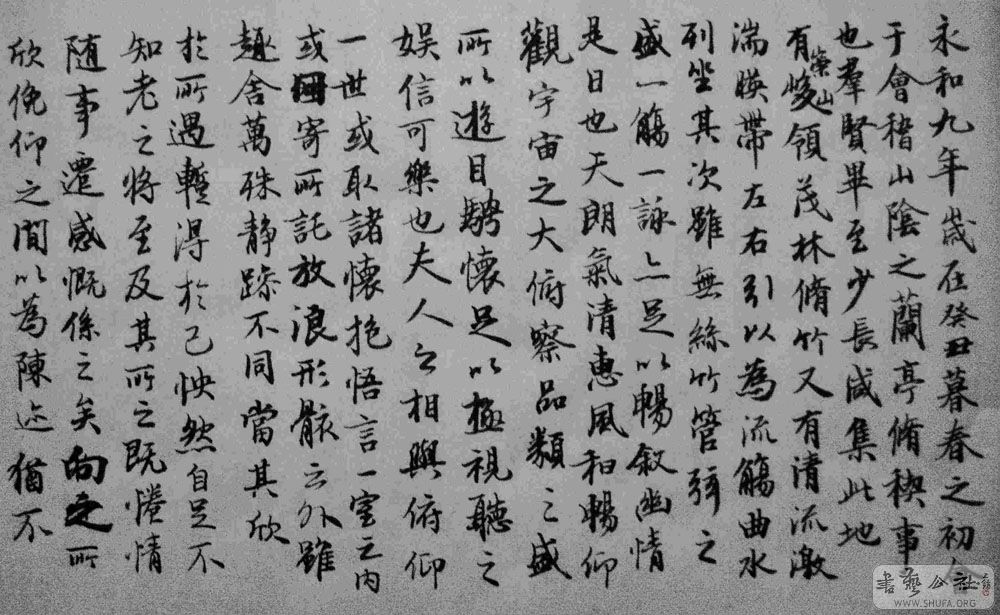 永和九年歲在癸丑暮春之初會
于會稽山陰之蘭亭脩禊事
也羣賢畢至少長咸集此地
有崇山峻領茂林脩竹又有清流激
湍暎帶左右引以為流觴曲水
列坐其次雖無絲竹管弦之
盛一觴一詠亦足以暢敘幽情
是日也天朗氣清惠風和暢仰
觀宇宙之大俯察品類之盛
所以遊目騁懷足以極視聽之
娛信可樂也夫人之相與俯仰
一世或取諸懷抱悟言一室之內
或因寄所託放浪形骸之外雖
趣舍萬殊靜躁不同當其欣
於所遇暫得於己怏然自足不
知老之將至及其所之既惓情
隨事遷感慨係之矣向之所
欣俛仰之間以為陳迹猶不
書藝公社
WWW.SHUFA.ORG